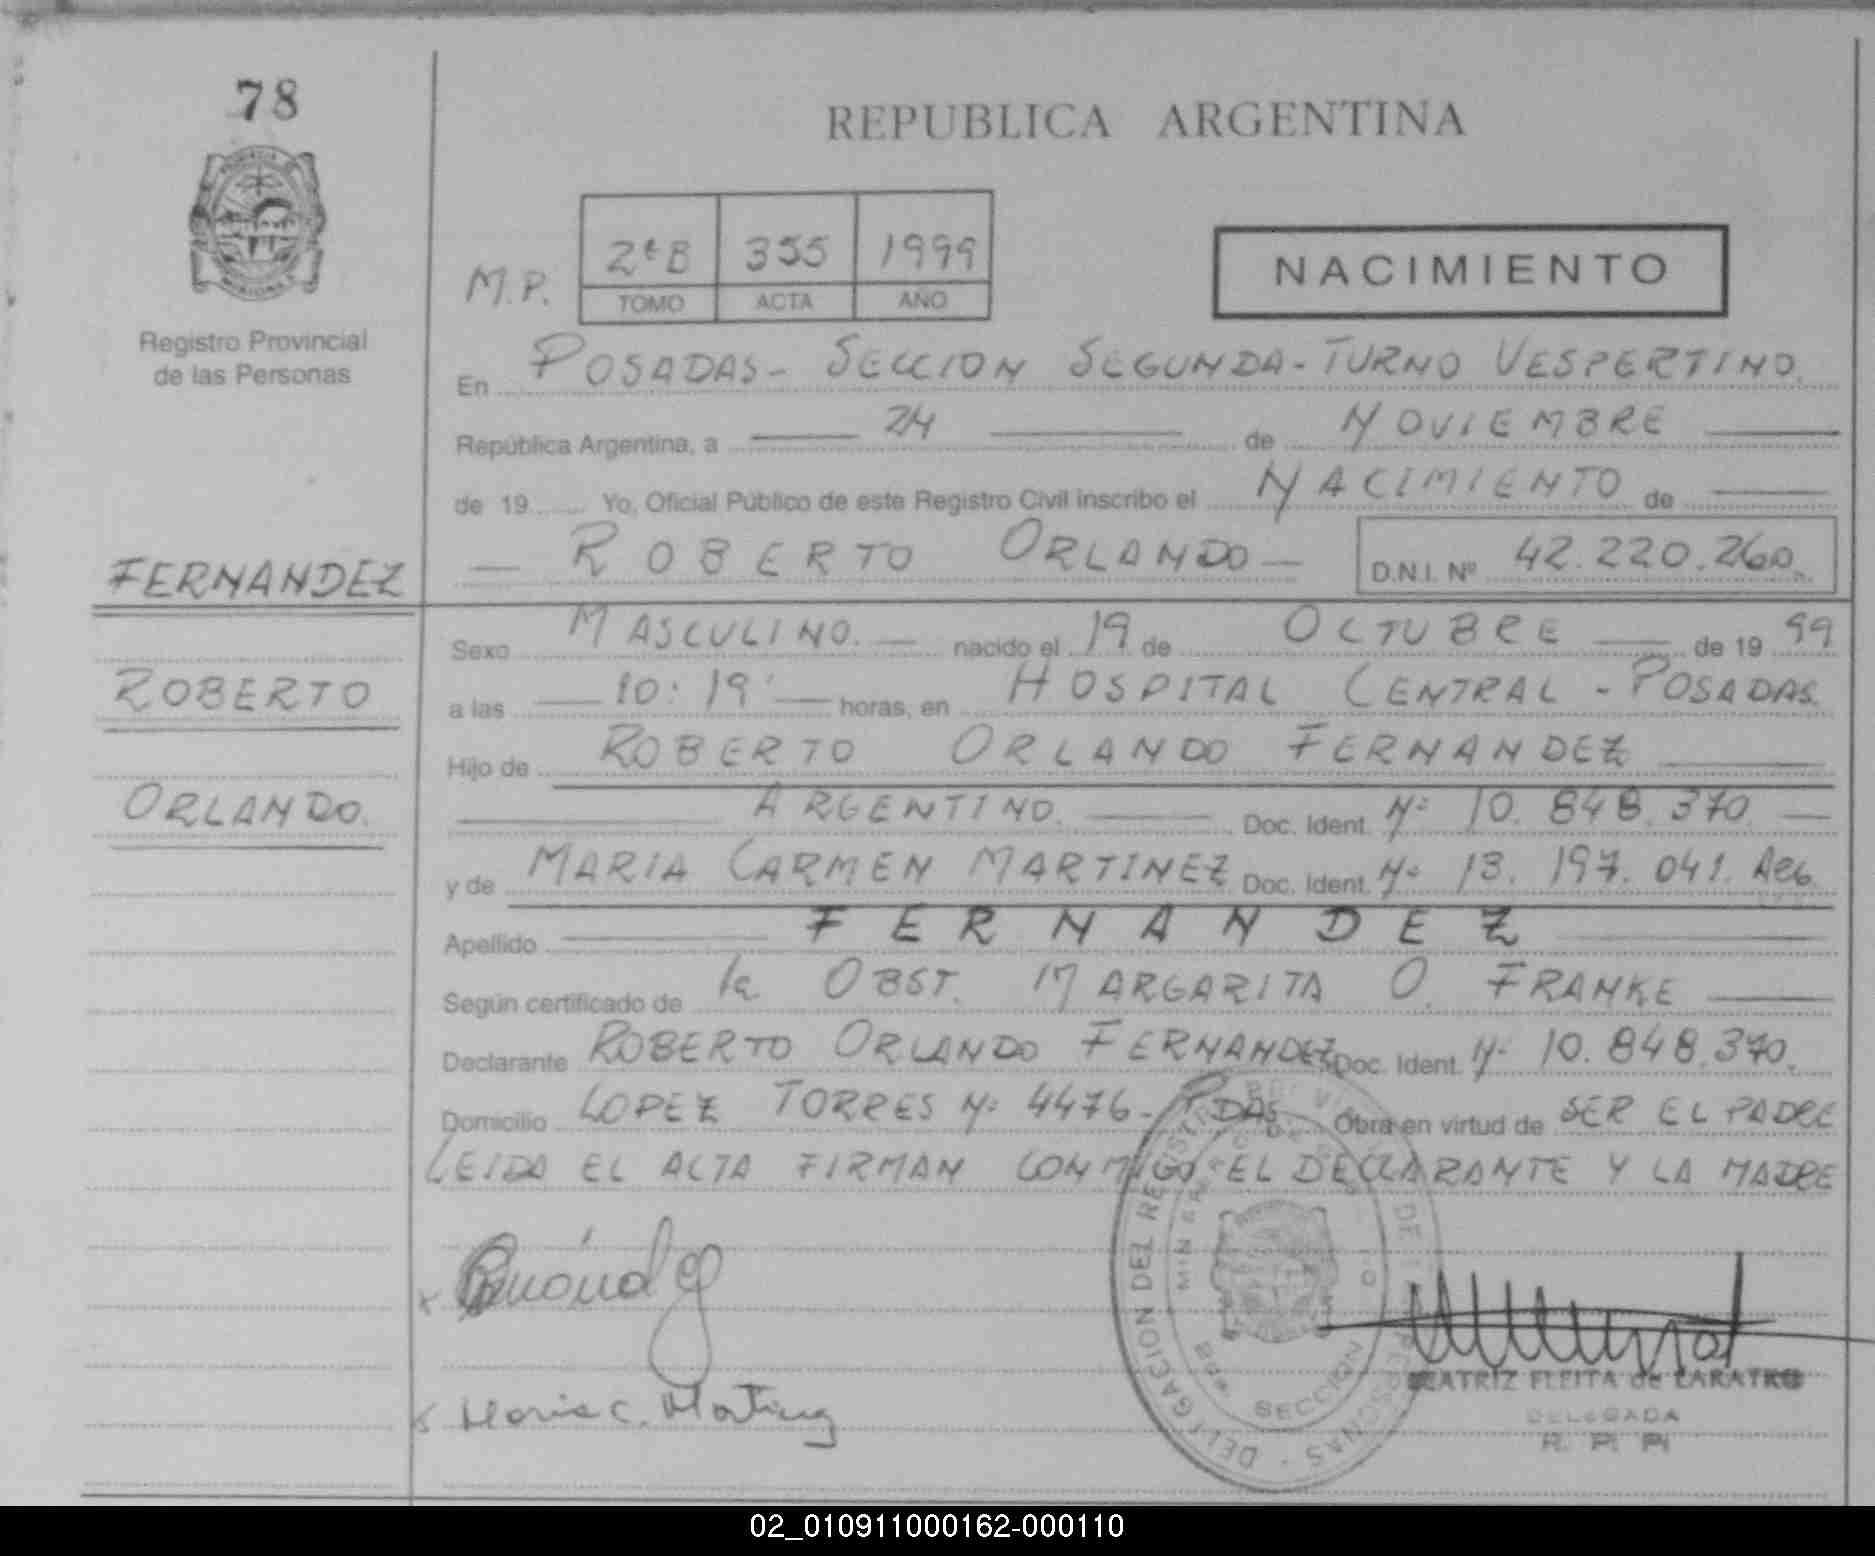 78
REPUBLICA ARGENTINA
M.P.
2ªB 355 1999
TOMO ACTA AÑO
NACIMIENTO
Registro Provincial
de las Personas
En POSADAS - SECCION SEGUNDA - TURNO VESPERTINO.
República Argentina, a 24 de NOVIEMBRE
de 19 Yo, Oficial Público de este Registro Civil inscribo el NACIMIENTO de
ROBERTO ORLANDO D.N.I. Nº 42.220.260.
FERNANDEZ
ROBERTO
ORLANDO.
Sexo MASCULINO. nacido el 19 de OCTUBRE de 19 99
a las 10:19' horas, en HOSPITAL CENTRAL - POSADAS.
Hijo de ROBERTO ORLANDO FERNANDEZ
ARGENTINO. Doc. Ident. Nº 10.848.370.
y de MARIA CARMEN MARTINEZ Doc. Ident. Nº 13.197.041. ARG.
Apellido FERNANDEZ
Según certificado de la OBST. MARGARITA O. FRANKE
Declarante ROBERTO ORLANDO FERNANDEZ Doc. Ident. Nº 10.848.370.
Domicilio LOPEZ TORRES Nº 4476 - PDAS Obra en virtud de SER EL PADRE
LEIDA EL ACTA FIRMAN CONMIGO EL DECLARANTE Y LA MADRE
Maria C. Martinez
DELEGACION DEL REGISTRO PROVINCIAL DE LAS PERSONAS
SECCION
BEATRIZ FLEITA de ZARATE
DELEGADA
R. P. P.
02_010911000162-000110